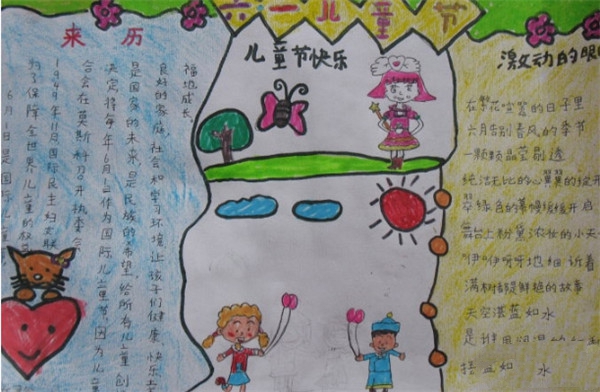 六一儿童节
来历
6月1日是国际
为了保障全世界儿童的
1949年11月国际民主妇女联
合会在莫斯科召开执委会
决定将每年6月1日作为国际儿童节,因为儿童
是国家的未来,是民族的希望,给所有儿童创
良好的家庭、社会和学习环境,让孩子们健康、快乐
福地成长。
儿童节快乐
激动的眼
在繁花喧嚣的日子里
六月告别春风的季节
一颗颗晶莹剔透
纯洁无比的心翼翼的绽开
翠绿色的幕幔缓缓开启
舞台上粉黛浓妆的小天
咿咿呀呀地细诉着
满树都是鲜艳的故事
天空湛蓝如水
是谁用
如水